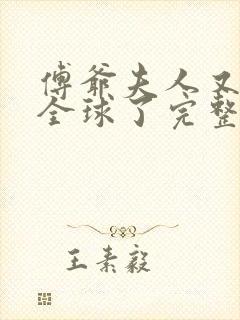 傅爷夫人又
全球了完整
王素毅